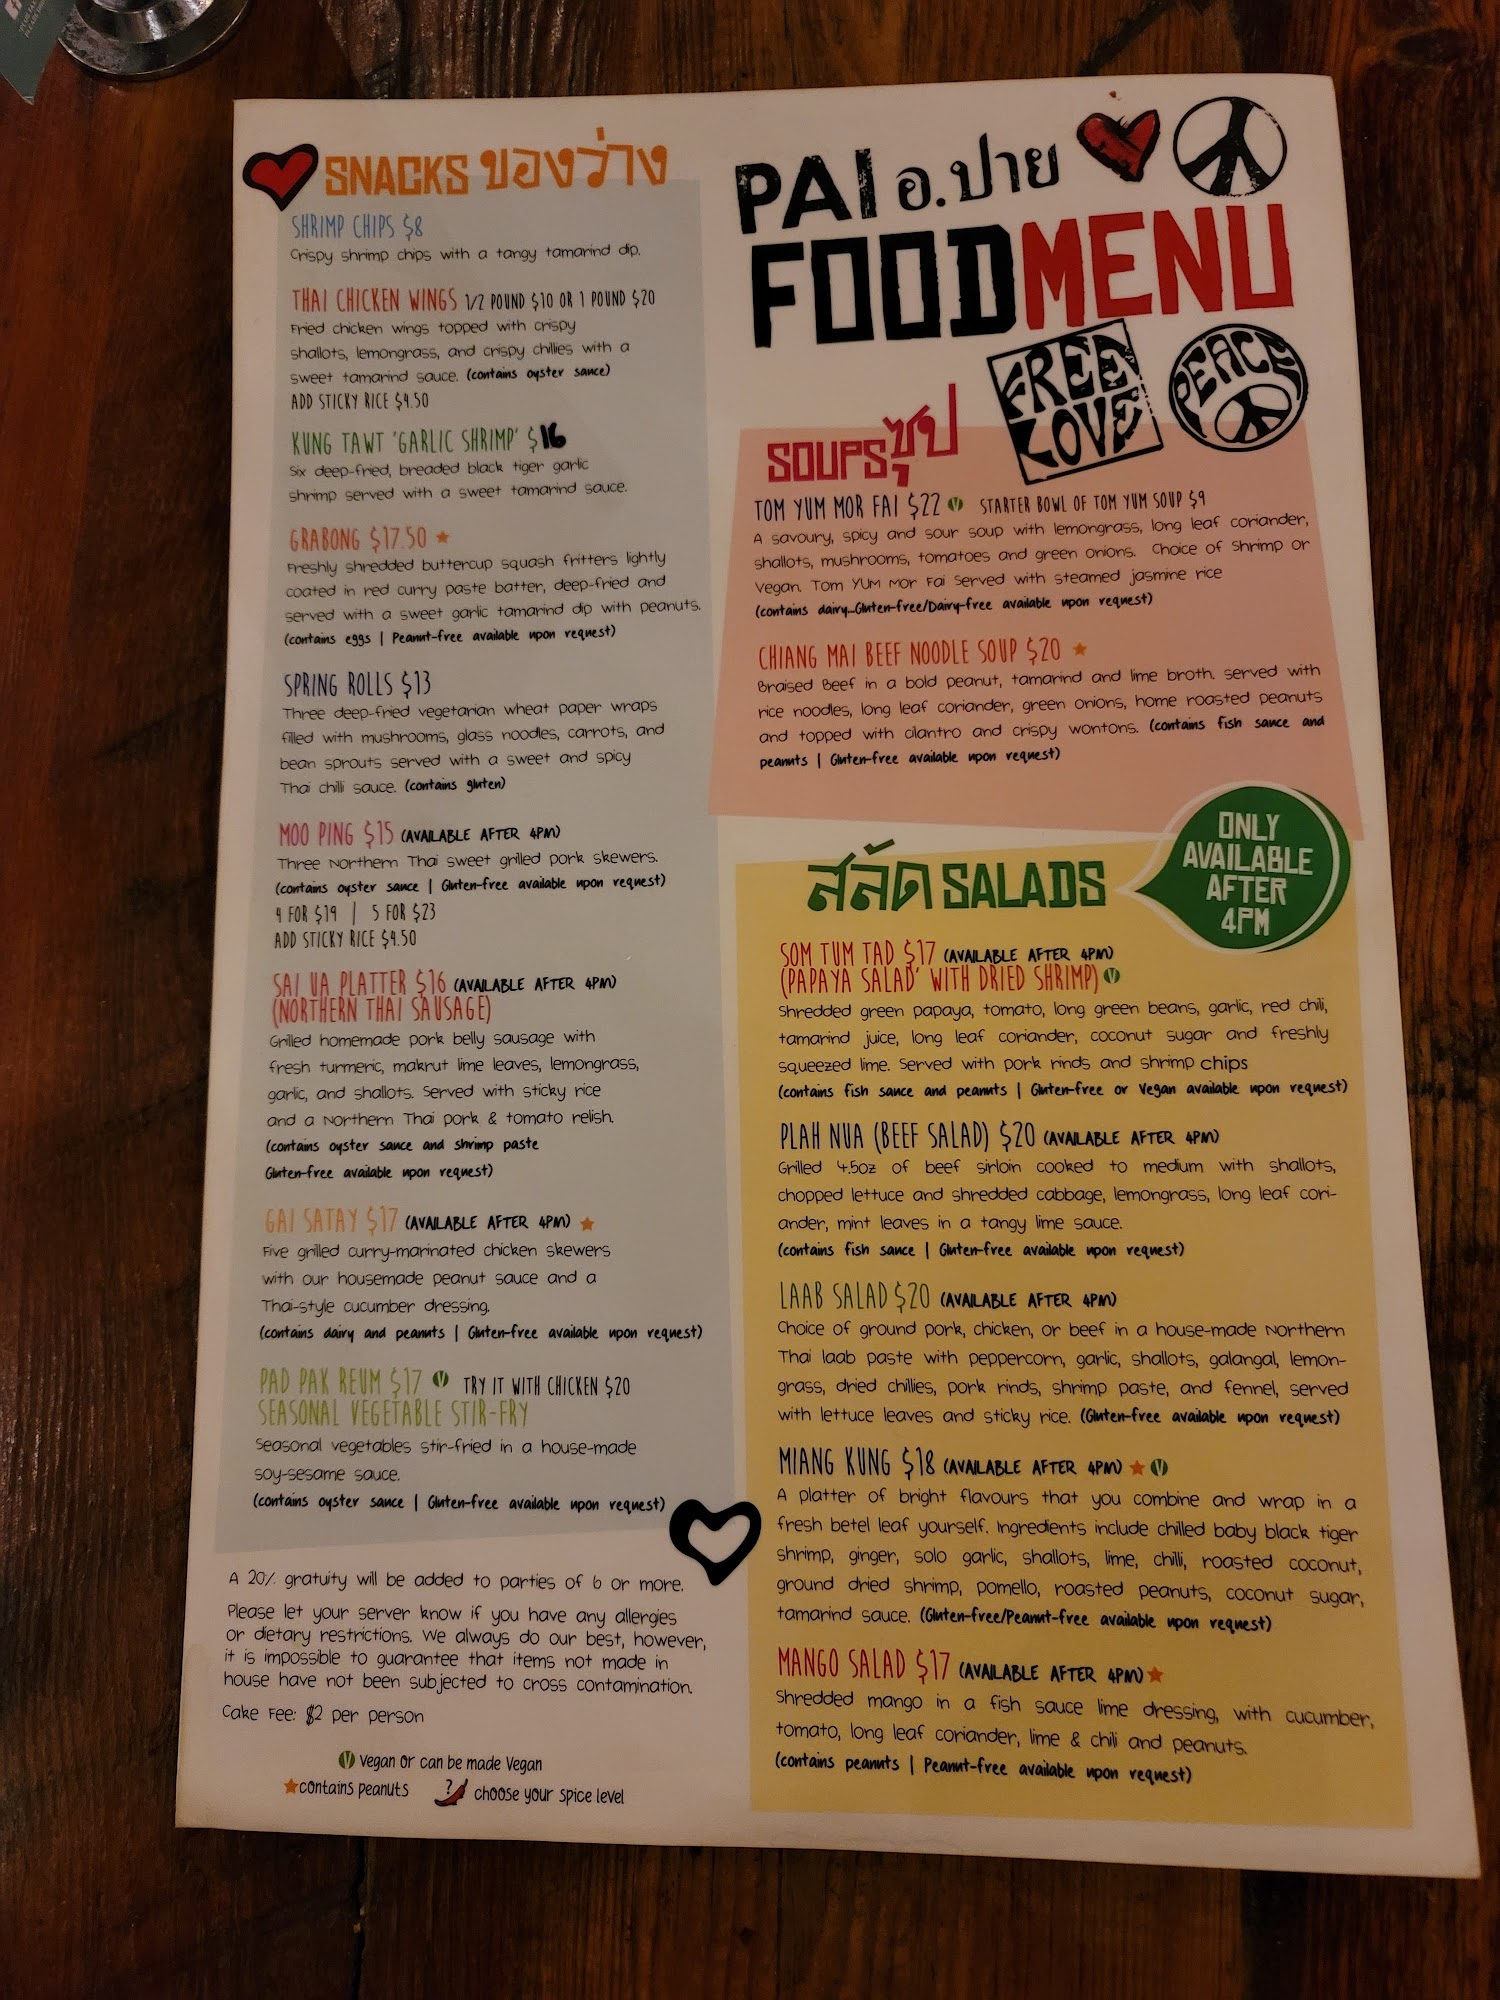 SNACKS ของว่าง
SHRIMP CHIPS $8
Crispy shrimp chips with a tangy tamarind dip.
THAI CHICKEN WINGS 1/2 POUND $10 OR 1 POUND $20
Fried chicken wings topped with crispy
shallots, lemongrass, and crispy chillies with a
sweet tamarind sauce. (contains oyster sauce)
ADD STICKY RICE $4.50
KUNG TAWT 'GARLIC SHRIMP' $16
Six deep-fried, breaded black tiger garlic
shrimp served with a sweet tamarind sauce.
GRABONG $17.50
Freshly shredded buttercup squash fritters lightly
coated in red curry paste batter, deep-fried and
served with a sweet garlic tamarind dip with peanuts.
(contains eggs | Peanut-free available upon request)
SPRING ROLLS $13
Three deep-fried vegetarian wheat paper wraps
filled with mushrooms, glass noodles, carrots, and
bean sprouts served with a sweet and spicy
Thai chilli sauce. (contains gluten)
MOO PING $15 (AVAILABLE AFTER 4PM)
Three Northern Thai sweet grilled pork skewers.
(contains oyster sauce | Gluten-free available upon request)
4 FOR $19 | 5 FOR $23
ADD STICKY RICE $4.50
SAI UA PLATTER $16 (AVAILABLE AFTER 4PM)
(NORTHERN THAI SAUSAGE)
Grilled homemade pork belly sausage with
fresh turmeric, makrut lime leaves, lemongrass,
garlic, and shallots. Served with sticky rice
and a Northern Thai pork & tomato relish.
(contains oyster sauce and shrimp paste
Gluten-free available upon request)
GAI SATAY $17 (AVAILABLE AFTER 4PM)
Five grilled curry-marinated chicken skewers
with our housemade peanut sauce and a
Thai-style cucumber dressing.
(contains dairy and peanuts | Gluten-free available upon request)
PAD PAK REUM $17 V TRY IT WITH CHICKEN $20
SEASONAL VEGETABLE STIR-FRY
Seasonal vegetables stir-fried in a house-made
soy-sesame sauce.
(contains oyster sauce | Gluten-free available upon request)
A 20% gratuity will be added to parties of 6 or more.
Please let your server know if you have any allergies
or dietary restrictions. We always do our best, however,
it is impossible to guarantee that items not made in
house have not been subjected to cross contamination.
Cake Fee: $2 per person
V Vegan or can be made Vegan
contains peanuts ? choose your spice level
PAI อ.ปาย
FOODMENU
FREE
LOVE
PEACE
SOUPS ซุป
TOM YUM MOR FAI $22 V STARTER BOWL OF TOM YUM SOUP $9
A savoury, spicy and sour soup with lemongrass, long leaf coriander,
shallots, mushrooms, tomatoes and green onions. Choice of Shrimp or
Vegan. Tom YUM Mor Fai Served with steamed jasmine rice
(contains dairy...Gluten-free/Dairy-free available upon request)
CHIANG MAI BEEF NOODLE SOUP $20
Braised Beef in a bold peanut, tamarind and lime broth. served with
rice noodles, long leaf coriander, green onions, home roasted peanuts
and topped with cilantro and crispy wontons. (contains fish sauce and
peanuts | Gluten-free available upon request)
สลัด SALADS
ONLY
AVAILABLE
AFTER
4PM
SOM TUM TAD $17 (AVAILABLE AFTER 4PM)
(PAPAYA SALAD' WITH DRIED SHRIMP) V
Shredded green papaya, tomato, long green beans, garlic, red chili,
tamarind juice, long leaf coriander, coconut sugar and freshly
squeezed lime. Served with pork rinds and shrimp chips
(contains fish sauce and peanuts | Gluten-free or Vegan available upon request)
PLAH NUA (BEEF SALAD) $20 (AVAILABLE AFTER 4PM)
Grilled 4.5oz of beef sirloin cooked to medium with shallots,
chopped lettuce and shredded cabbage, lemongrass, long leaf cori-
ander, mint leaves in a tangy lime sauce.
(contains fish sauce | Gluten-free available upon request)
LAAB SALAD $20 (AVAILABLE AFTER 4PM)
Choice of ground pork, chicken, or beef in a house-made Northern
Thai laab paste with peppercorn, garlic, shallots, galangal, lemon-
grass, dried chillies, pork rinds, shrimp paste, and fennel, served
with lettuce leaves and sticky rice. (Gluten-free available upon request)
MIANG KUNG $18 (AVAILABLE AFTER 4PM) V
A platter of bright flavours that you combine and wrap in a
fresh betel leaf yourself. Ingredients include chilled baby black tiger
shrimp, ginger, solo garlic, shallots, lime, chilli, roasted coconut,
ground dried shrimp, pomello, roasted peanuts, coconut sugar,
tamarind sauce. (Gluten-free/Peanut-free available upon request)
MANGO SALAD $17 (AVAILABLE AFTER 4PM)
Shredded mango in a fish sauce lime dressing, with cucumber,
tomato, long leaf coriander, lime & chili and peanuts.
(contains peanuts | Peanut-free available upon request)